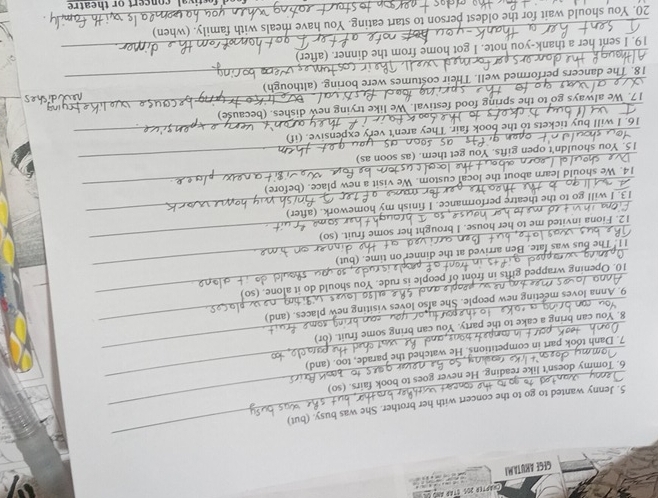 GEGE AKUTAMI
5. Jenny wanted to go to the concert with her brother. She was busy. (but)
Jenny wanted to go to the concert with her brother, but she was busy
6. Tommy doesn't like reading. He never goes to book fairs. (so)
Tommy doesn't like reading, so he never goes to book fairs
7. Danh took part in competitions. He watched the parade, too. (and)
Danh took part in competitions, and he watched the parade, too
8. You can bring a cake to the party. You can bring some fruit. (or)
You can bring a cake to the party, or you can bring some fruit.
9. Anna loves meeting new people. She also loves visiting new places. (and)
Anna loves meeting new people and she also loves visiting new places
10. Opening wrapped gifts in front of people is rude. You should do it alone. (so)
Opening wrapped gifts in front of people is rude so you should do it alone
11. The bus was late. Ben arrived at the dinner on time. (but)
The bus was late, but Ben arrived at the dinner on time
12. Fiona invited me to her house. I brought her some fruit. (so)
Fiona invited me to her house so I brought her some fruit.
13. I will go to the theatre performance. I finish my homework. (after)
I will go to the theatre performance after I finish my homework
14. We should learn about the local custom. We visit a new place. (before)
We should learn about the local custom before we visit a new place
15. You shouldn't open gifts. You get them. (as soon as)
You shouldn't open gifts as soon as you get them
16. I will buy tickets to the book fair. They aren't very expensive. (if)
I will buy tickets to the book fair if they aren't very expensive.
17. We always go to the spring food festival. We like trying new dishes. (because)
We always go to the spring food festival because we like trying new dishes
18. The dancers performed well. Their costumes were boring. (although)
Although the dancers performed well their costumes were boring
19. I sent her a thank-you note. I got home from the dinner. (after)
I sent her a thank-you note after I got home from the dinner
20. You should wait for the oldest person to start eating. You have meals with family. (when)